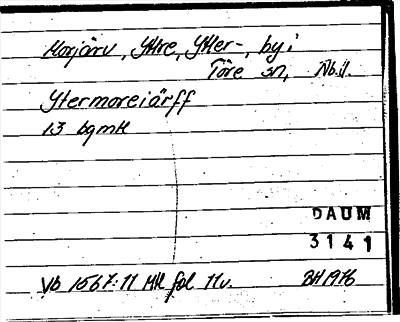 Morjärv, Yttre, Ytter-, by i
Töre sn, Nb.l.
Ytermoreiärff
13 bgmtl
DAUM
3141
Vb 1567:11 Mtl fol 11v. BH 1976